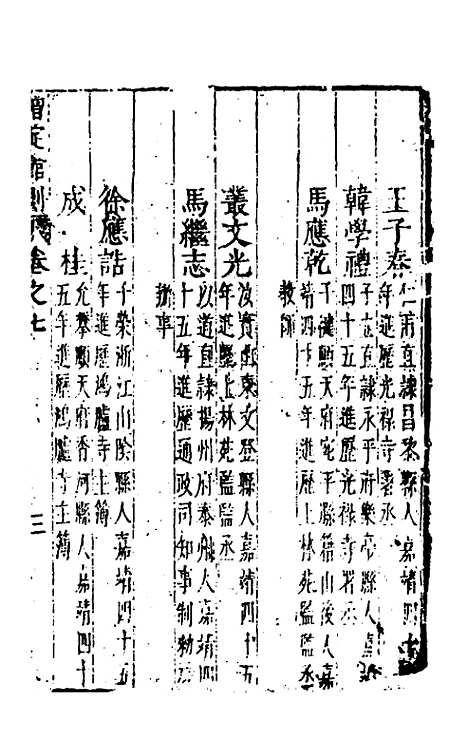 王子春 仁甫直隸昌黎縣人嘉靖四十
年進歷光祿寺署丞
韓學禮 子立直隸永平府樂亭縣人嘉
四十五年進歷光祿寺署丞
馬應乾 子健順天府宛平縣籍山後人嘉
靖四十五年進歷上林苑監監丞
教師
叢文光 汝實山東文登縣人嘉靖四十五
年進歷上林苑監監丞
馬繼志 以道直隸揚州府泰州人嘉靖四
十五年進歷通政司知事制勑
辦事
徐應誥 子榮浙江山陰縣人嘉靖四十五
年進歷鴻臚寺主簿
成桂 允攀順天府香河縣人嘉靖四十
五年進歷鴻臚寺主簿
增定館則卷之七
三